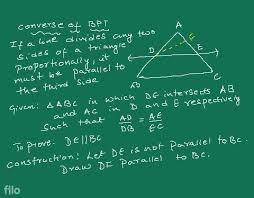 converse of BPT
If a line divides any two
sides of a triangle
proportionally, it
must be parallel to
the third side
A
F
D
E
B
C
Given: △ABC in which DE intersects AB
and AC in D and E respectively
such that AD/DB = AE/EC
To prove: DE||BC
Construction: Let DE is not Parallel to BC.
Draw DF Parallel to BC.
filo